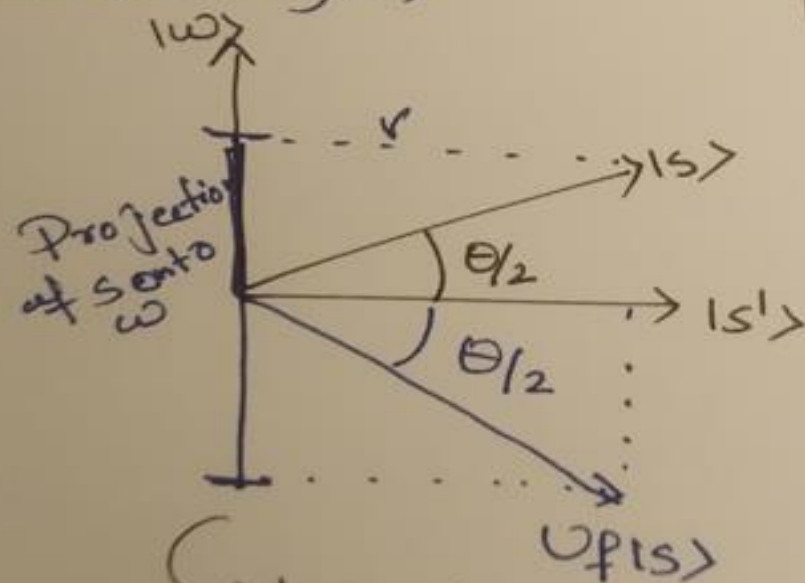 |w>
r
|s>
Projection
of s onto
w
θ/2
|s'>
θ/2
Uf|s>